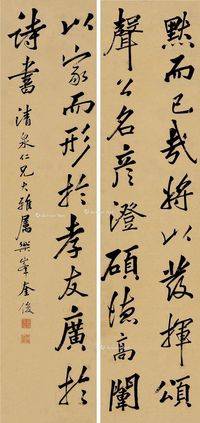 默而已哉将以發揮頌
聲公名彦澄碩德高闡
以家而形於孝友廣於
詩書
清泉仁兄大雅属樂峯奎俊